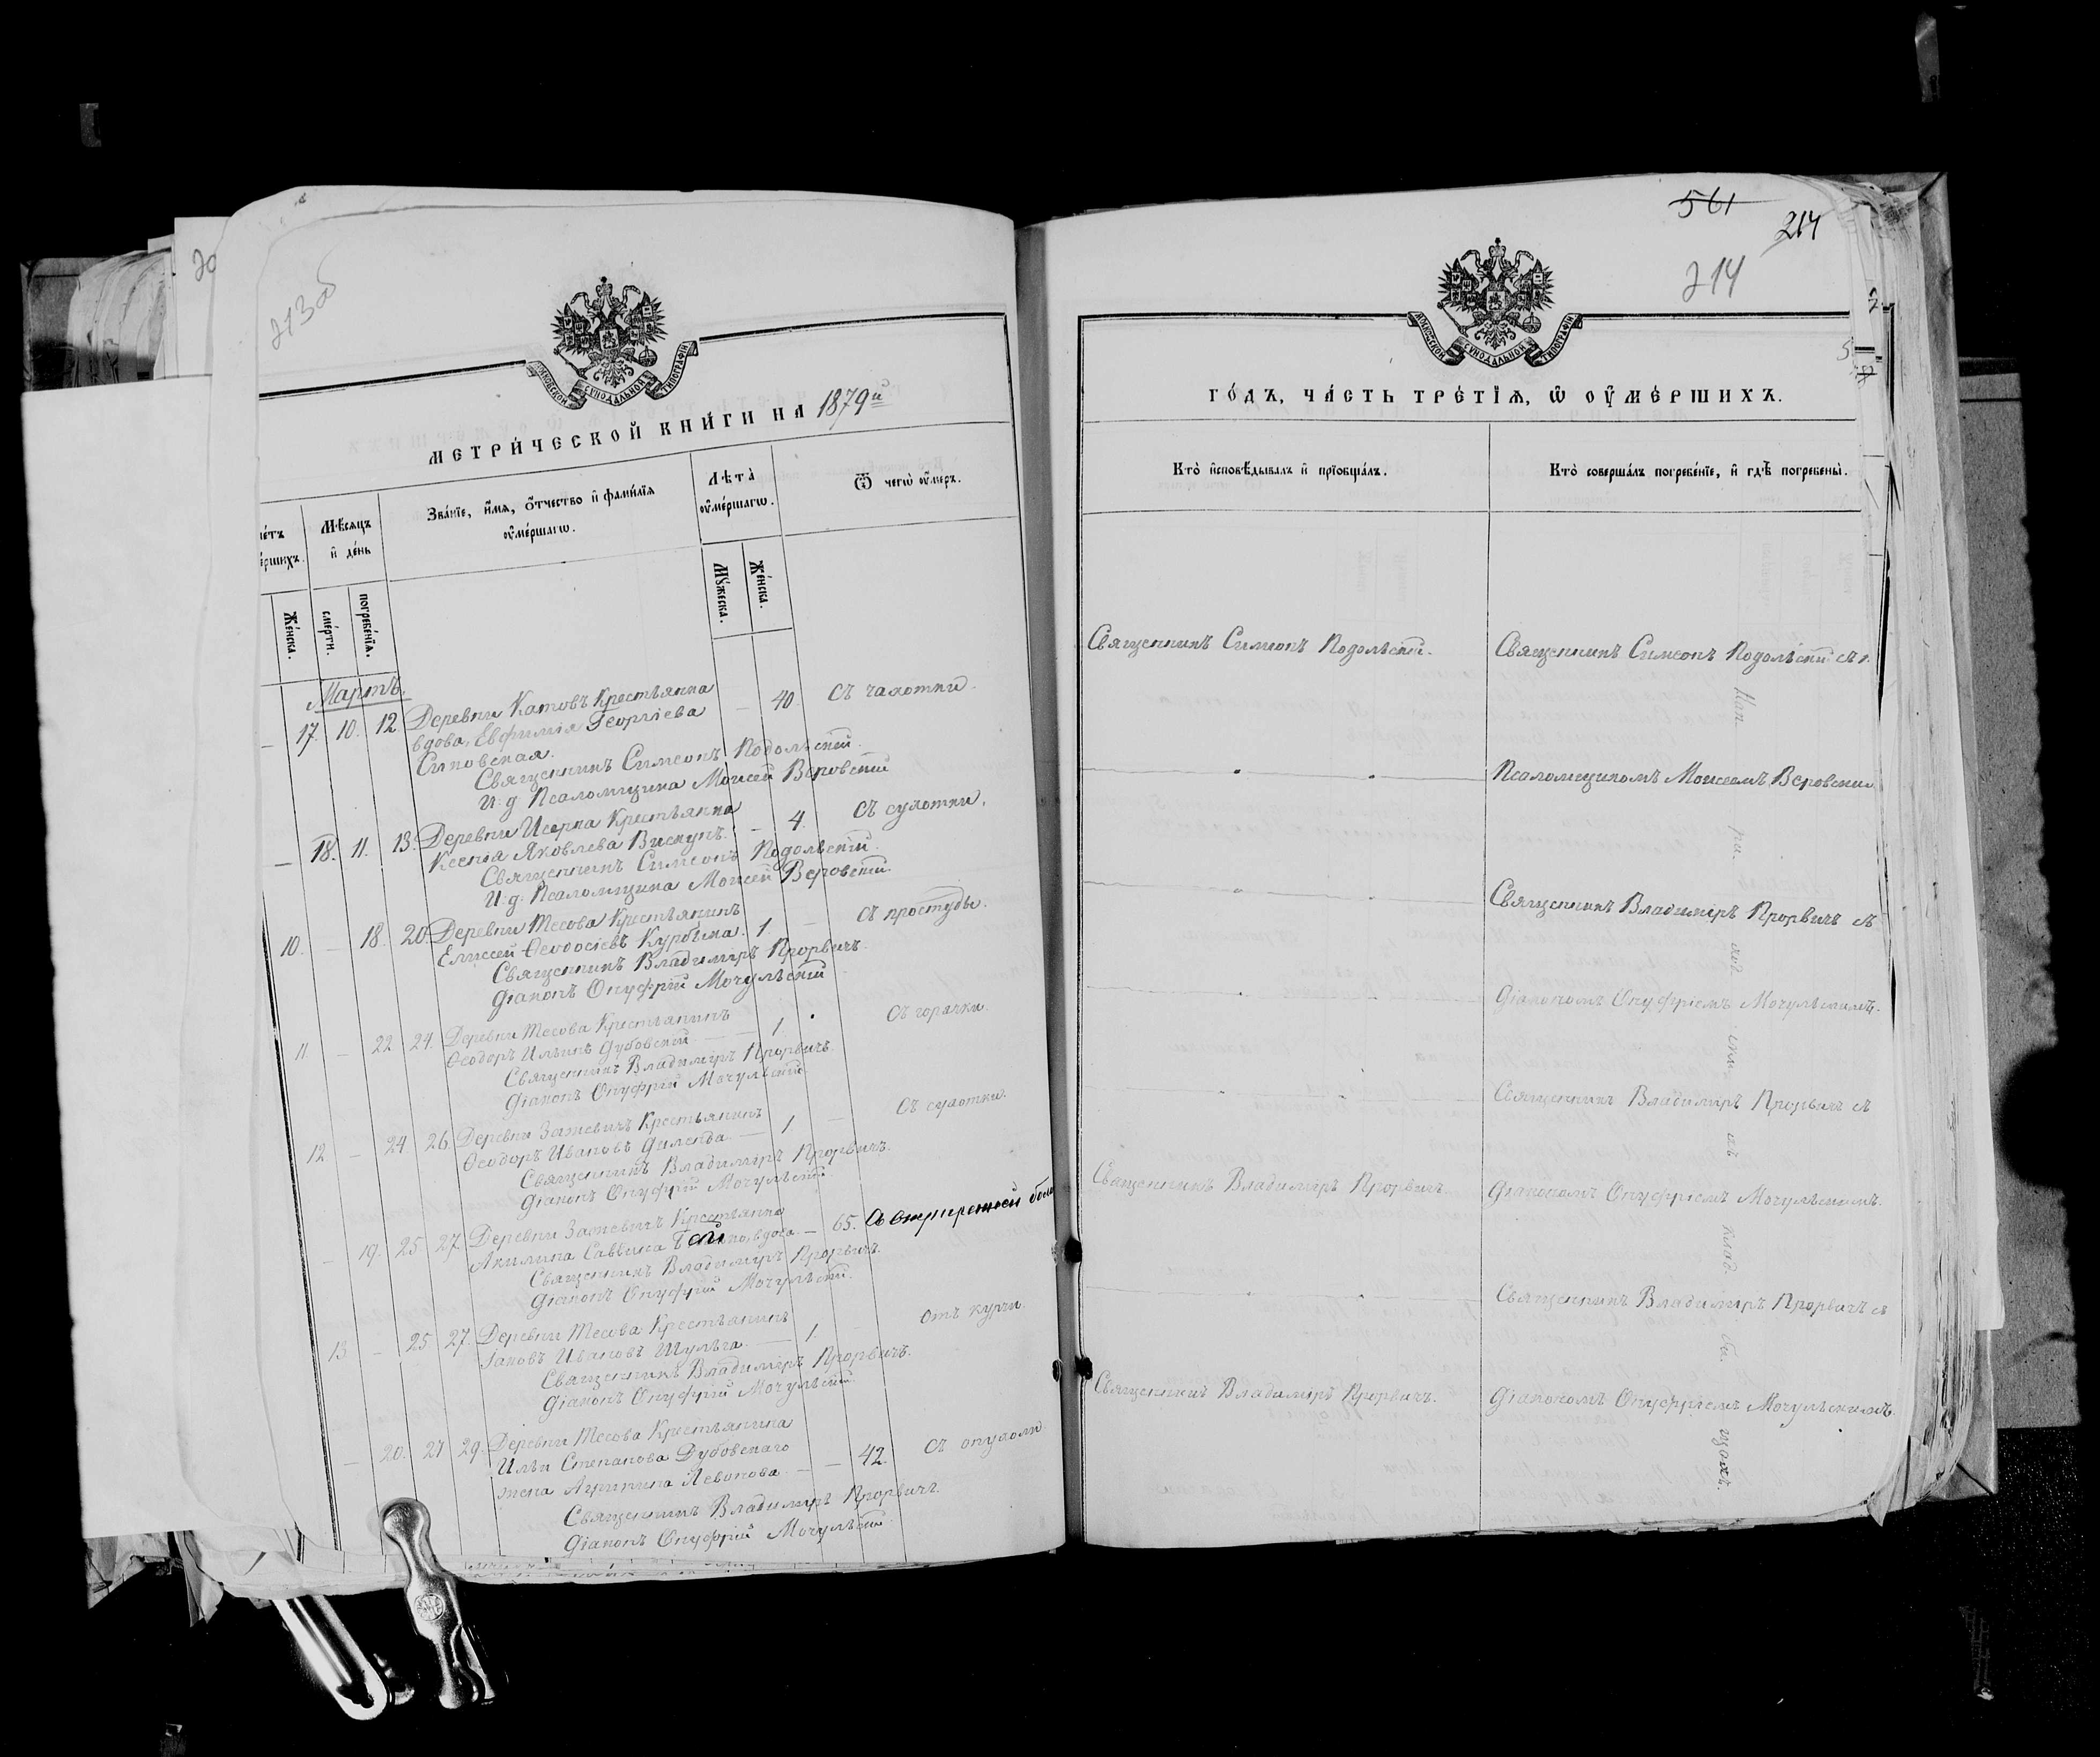 213об
МЕТРИ́ЧЕСКОЙ КНИ́ГИ НА 1879й
Мѣ́сяцъ и҆ де́нь
Зва́нїе, и҆́мѧ, ѻ҆́тчество и҆ фами́лїѧ ᲂу҆ме́ршагѡ.
Лѣ́та ᲂу҆ме́ршагѡ.
Ѿ чегѡ̀ ᲂу҆́меръ.
Же́нска.
сме́рти.
погребе́нїѧ.
Мꙋ́жеска.
Же́нска.
Мартъ.
— 17. 10. 12 Деревни Катовъ Крестьянка — 40. Съ чахотки.
вдова, Евфимія Георгіева
Священникъ Симеонъ Подольскій.
И. д. Псаломщика Моисей Вѣровскій
— 18. 11. 13. Деревни Исерна Крестьянка — 4. Съ сухотки.
Ксенія Яковлева Вискунъ.
Священникъ Симеонъ Подольскій.
И. д. Псаломщика Моисей Вѣровскій.
10. — 18. 20. Деревни Тесова Крестьянинъ 1. — Съ простуды.
Елиссей Ѳеодосіевъ Курбыка.
Священникъ Владиміръ Прорвичъ.
Діаконъ Онуфрій Мочульскій
11. — 22 24. Деревни Тесова Крестьянинъ 1. Съ горячки.
Ѳеодоръ Ильинъ Дубовскій
Священникъ Владиміръ Прорвичъ.
Діаконъ Онуфрій Мочульскій.
12 — 24 26. Деревни Зажевичъ Крестьянинъ 1 — Съ сухотки.
Ѳеодоръ Ивановъ
Священникъ Владиміръ Прорвичъ.
Діаконъ Онуфрій Мочульскій.
— 19. 25 27. Деревни Зажевичъ Крестьянка — 65.
Акилина Саввина вдова
Священникъ Владиміръ Прорвичъ.
Діаконъ Онуфрій Мочульскій.
13 — 25 27. Деревни Тесова Крестьянинъ 1. Отъ курчи.
Іаковъ Ивановъ Шульга.
Священникъ Владиміръ Прорвичъ.
Діаконъ Онуфрій Мочульскій.
— 20. 27 29. Деревни Тесова Крестьянина — 42. Съ опухоли
Ильи Степанова Дубовскаго
жена Левонова
Священникъ Владиміръ Прорвичъ.
Діаконъ Онуфрій Мочульскій.
561
214
214
ГО́ДЪ, ЧА́СТЬ ТРЕ́ТЇѦ, Ѡ҆ ОУ҆МЕ́РШИХЪ.
Кто̀ и҆сповѣ́дывалъ и҆ прїѡбща́лъ.
Кто̀ соверша́лъ погребе́нїе, и҆ гдѣ̀ погребены̀.
Священникъ Симеонъ Подольскій.
Священникъ Симеонъ Подольскій съ
Псаломщикомъ Моисеемъ Вѣровским
Священникъ Владиміръ Прорвичъ съ
Діакономъ Онуфріемъ Мочульскимъ.
Священникъ Владиміръ Прорвичъ съ
Священникъ Владиміръ Прорвичъ.
Діакономъ Онуфріемъ Мочульскимъ.
Священникъ Владиміръ Прорвичъ съ
Священникъ Владиміръ Прорвичъ.
Діакономъ Онуфріемъ Мочульскимъ.